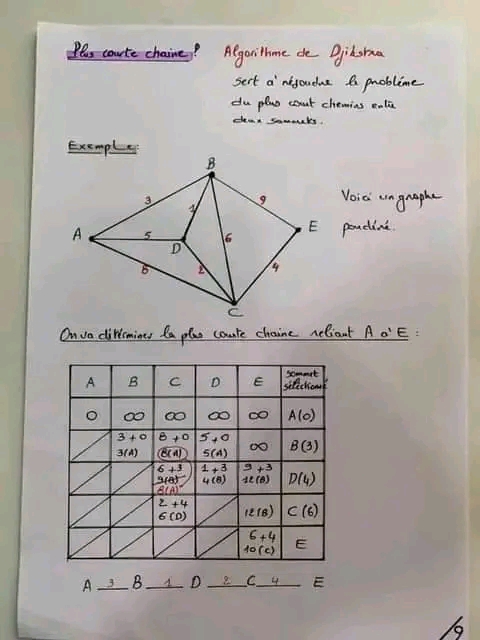 Plus courte chaine ? Algorithme de Djikstra
sert à résoudre le problème
du plus court chemins entre
deux sommets.
Exemple:
B
3
1
9
A
5
D
6
E
8
2
4
C
Voici un graphe
pondéré.
On va détérminer la plus courte chaine reliant A à E :
A B C D E sommet sélectionné
0 ∞ ∞ ∞ ∞ A(0)
3+0 8+0 5+0
3(A) 8(A) 5(A) ∞ B(3)
6+3 1+3 9+3
9(B) 4(B) 12(B) D(4)
8(A)
2+4
6(D) 12(B) C(6)
6+4
10(C) E
A 3 B 1 D 2 C 4 E
/9